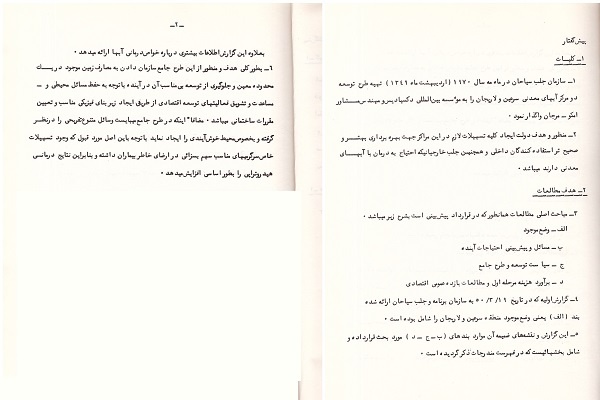 پیش گفتار
۱ـ کلیات
۱ـ سازمان جلب سیاحان در ماه مه سال ۱۹۷۰ (اردیبهشت ماه ۱۳۴۹) تهیه طرح توسعه
دو مرکز آبهای معدنی سرعین و لاریجان را به موسسه بین‌المللی دکسیادیس و مهندس مشاور
امکو ـ مرجان واگذار نمود ۰
۲ـ منظور و هدف دولت ایجاد کلیه تسهیلات لازم در این مراکز جهت بهره برداری بهتر و
صحیح تر استفاده کنندگان داخلی و همچنین جلب خارجیانیکه احتیاج به درمان با آبهای
معدنی دارند میباشد ۰
۲ـ هدف مطالعات
۳ـ مباحث اصلی مطالعات همانطور که در قرارداد پیش‌بینی است بشرح زیر میباشد ۰
الف ـ وضع موجود
ب ـ مسائل و پیش‌بینی احتیاجات آینده
ج ـ سیاست توسعه و طرح جامع
د ـ برآورد هزینه مرحله اول و مطالعات بازده عمومی اقتصادی
۴ـ گزارش اولیه که در تاریخ ۵۰/۳/۱۹ به سازمان برنامه و جلب سیاحان ارائه شده
بند (الف) یعنی وضع موجود منطقه سرعین و لاریجان را شامل بوده است ۰
۵ـ این گزارش و نقشه‌های ضمیمه آن موارد بند های (ب ـ ج ـ د) مورد بحث قرار داده و
شامل بخشهائیست که در فهرست مندرجات ذکر گردیده است ۰
ـ۲ـ
بعلاوه این گزارش اطلاعات بیشتری درباره خواص درمانی آبها ارائه میدهد ۰
۶ـ بطور کلی هدف و منظور از این طرح جامع سازمان دادن به مصارف زمین موجود در یک
محدوده معین و جلوگیری از توسعه بی‌مناسب آن در آینده با توجه به حفظ مسائل محیطی و ـ
مساعدت و تشویق فعالیتهای توسعه اقتصادی از طریق ایجاد زیر بنای فیزیکی مناسب و تعیین
مقررات ساختمانی میباشد ۰ مضافا" اینکه در طرح جامع میبایست وسائل متنوع تفریحی را در نظر
گرفته و بخصوص محیط خوش‌آیندی را ایجاد نماید با توجه باین اصل مورد قبول که وجود تسهیلات
خاص سرگرمیهای مناسب سهم بسزائی در ارضای خاطر بیماران داشته و بنابراین نتایج درمانی
هیدروتراپی را بطور اساسی افزایش میدهد ۰